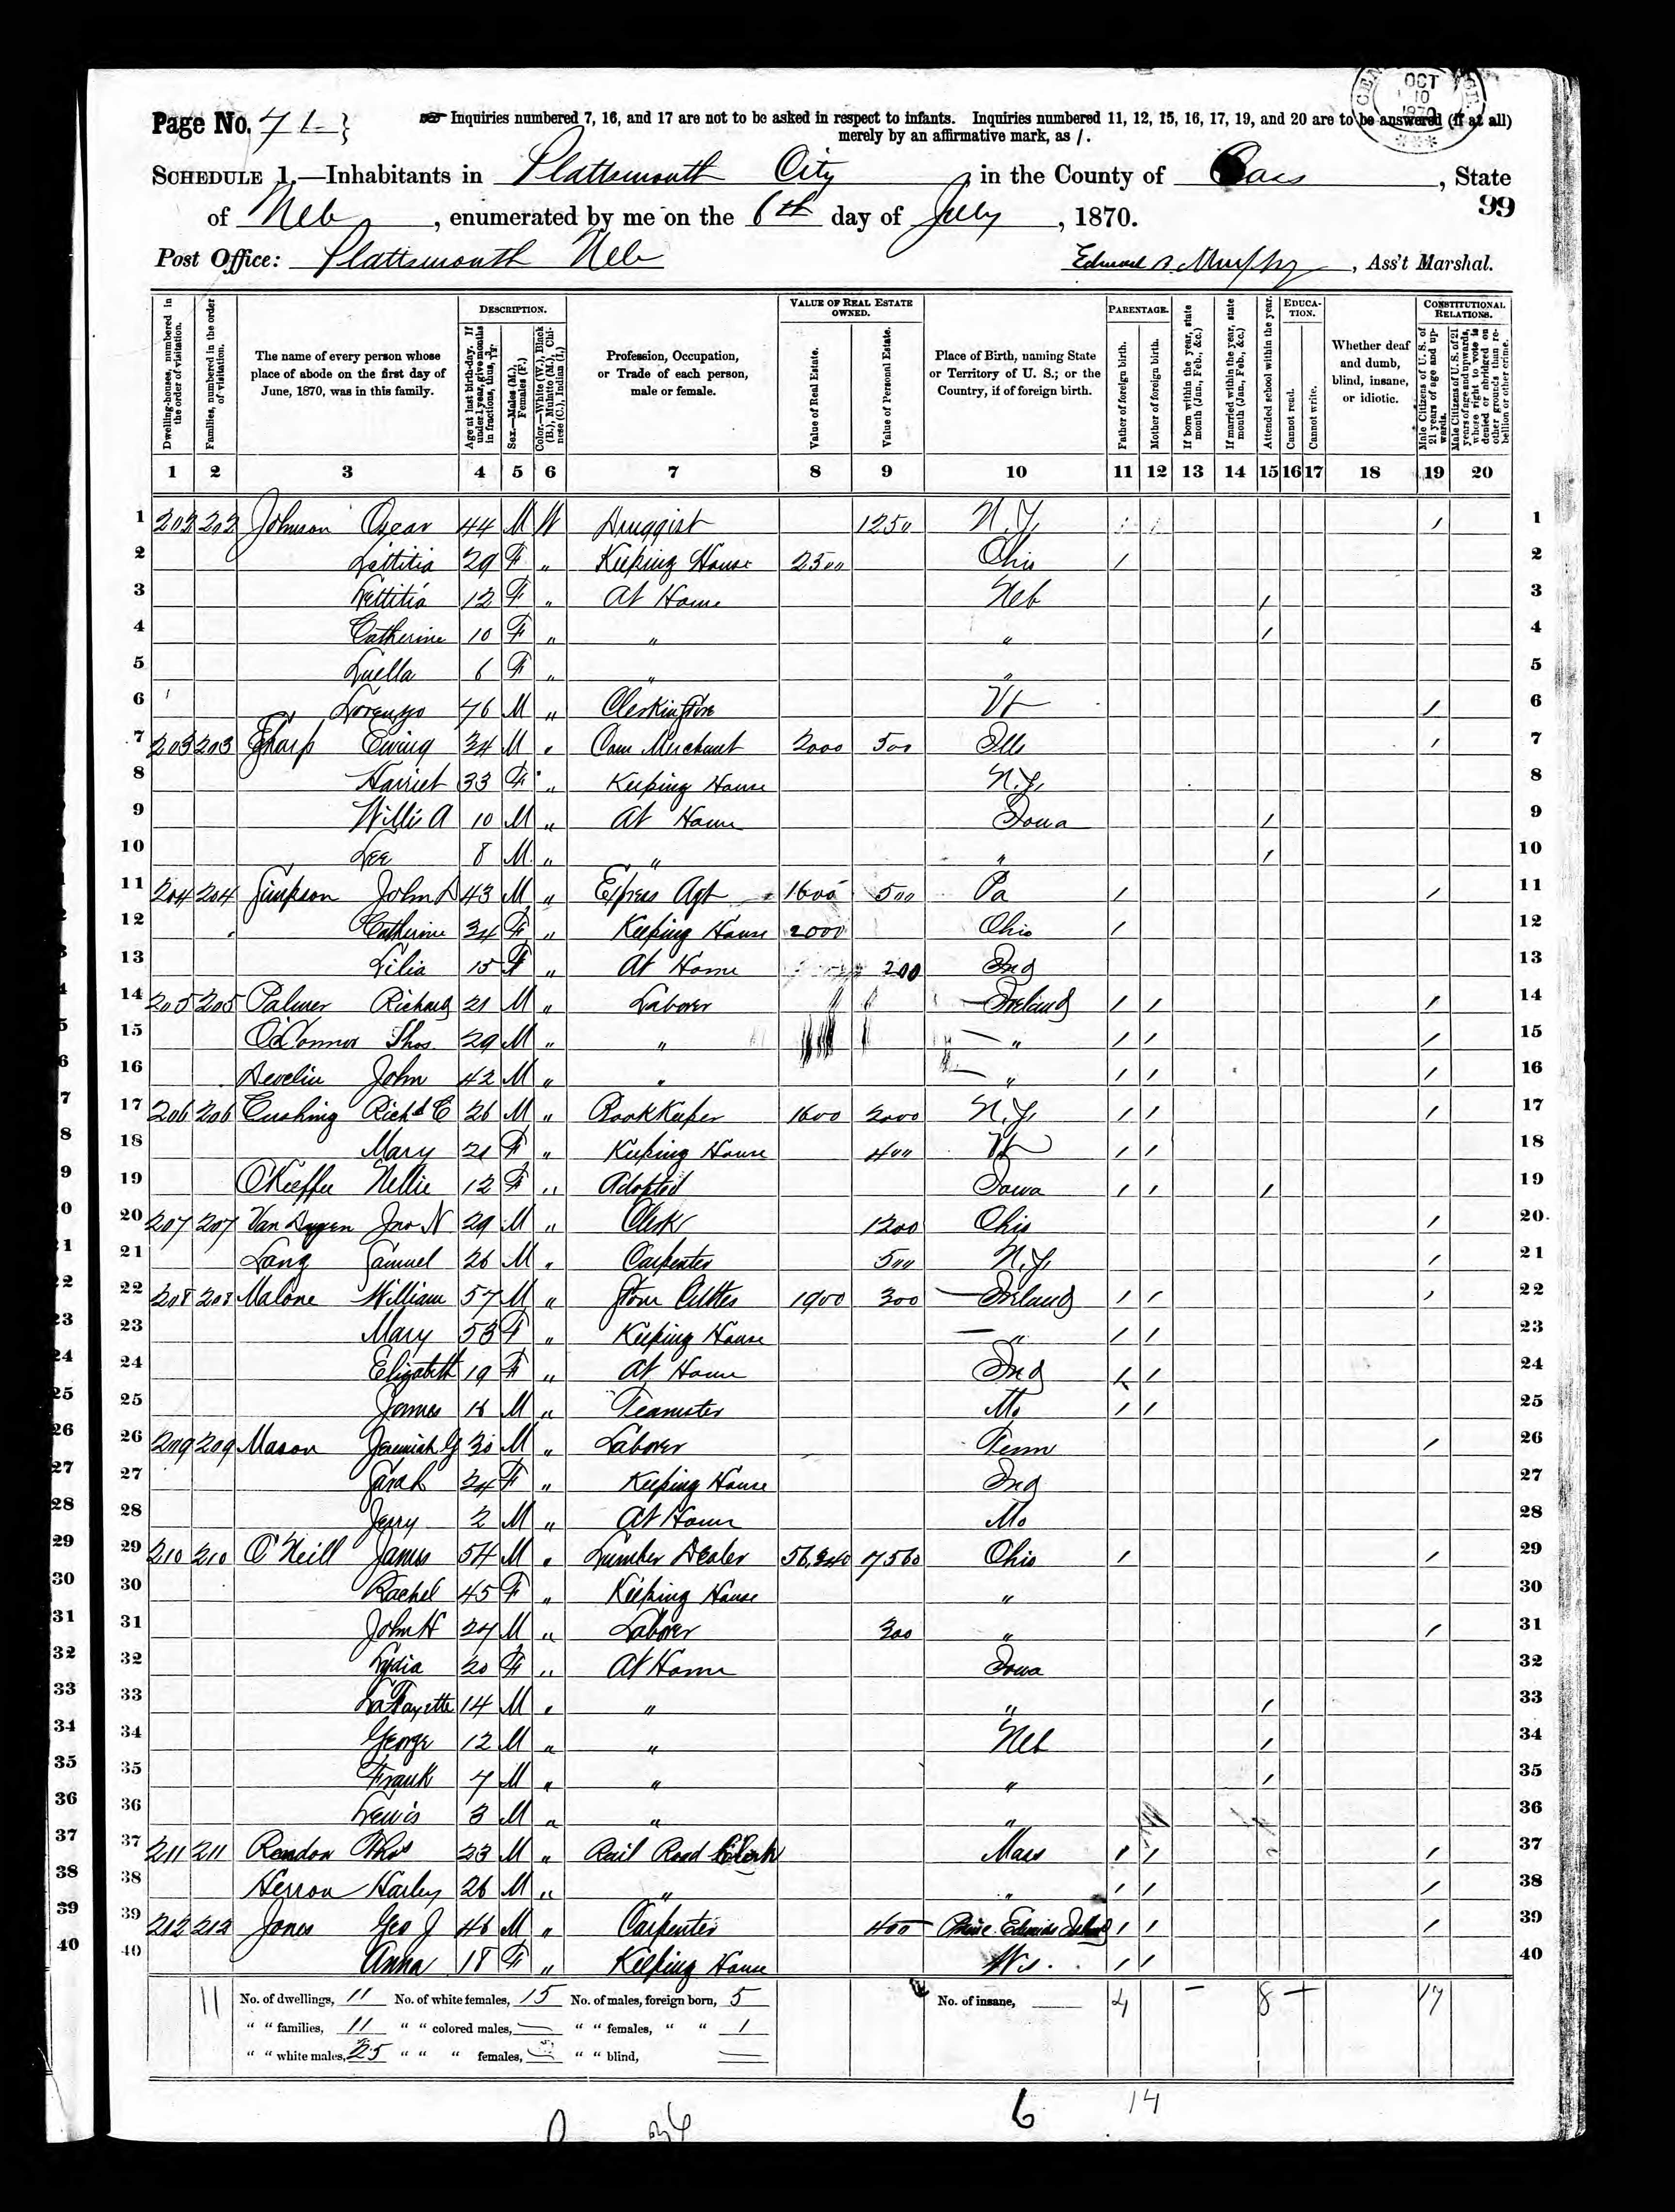 CENSUS OFFICE OCT 10 1870
Page No. 71
Inquiries numbered 7, 16, and 17 are not to be asked in respect to infants. Inquiries numbered 11, 12, 15, 16, 17, 19, and 20 are to be answered (if at all)
merely by an affirmative mark, as /.
SCHEDULE 1.—Inhabitants in Plattsmouth City, in the County of Cass, State
of Neb, enumerated by me on the 6th day of July, 1870.
99
Post Office: Plattsmouth Neb
Edward Murphy, Ass't Marshal.
Dwelling-houses, numbered in the order of visitation.
Families, numbered in the order of visitation.
The name of every person whose place of abode on the first day of June, 1870, was in this family.
DESCRIPTION.
Age at last birth-day. If under 1 year, give months in fractions, thus, 3/12.
Sex.—Males (M.), Females (F.)
Color.—White (W.), Black (B.), Mulatto (M.), Chinese (C.), Indian (I.)
Profession, Occupation, or Trade of each person, male or female.
VALUE OF REAL ESTATE OWNED.
Value of Real Estate.
Value of Personal Estate.
Place of Birth, naming State or Territory of U. S.; or the Country, if of foreign birth.
PARENTAGE.
Father of foreign birth.
Mother of foreign birth.
If born within the year, state month (Jan., Feb., &c.)
If married within the year, state month (Jan., Feb., &c.)
Attended school within the year.
EDUCATION.
Cannot read.
Cannot write.
Whether deaf and dumb, blind, insane, or idiotic.
CONSTITUTIONAL RELATIONS.
Male Citizens of U. S. of 21 years of age and upwards.
Male Citizens of U. S. of 21 years of age and upwards, whose right to vote is denied or abridged on other grounds than rebellion or other crime.
1 2 3 4 5 6 7 8 9 10 11 12 13 14 15 16 17 18 19 20
1 202 202 Johnson Oscar 44 M W Druggist 1250 N.Y. / 1
2 Lettitia 29 F " Keeping House 2500 Ohio / 2
3 Lettitia 12 F " At Home Neb / 3
4 Catherine 10 F " " " / 4
5 Luella 6 F " " " 5
6 Lorenzo 76 M " Clerk in Store Vt / 6
7 203 203 Sharp Ewing 34 M " Com Merchant 2000 500 Ills / 7
8 Harriet 33 F " Keeping House N.Y. 8
9 Willi A 10 M " At Home Iowa / 9
10 Lee 8 M " " " / 10
11 204 204 Simpson John D 43 M " Express Agt 1600 500 Pa / / 11
12 Catherine 34 F " Keeping House 2000 Ohio / 12
13 Lilia 15 F " At Home 200 Ind 13
14 205 205 Palmer Richard 21 M " Laborer Ireland / / / 14
15 O'Connor Thos. 29 M " " " / / / 15
16 Develin John 42 M " " " / / / 16
17 206 206 Cushing Richd C 26 M " Book Keeper 1600 2000 N.Y. / / / 17
18 Mary 21 F " Keeping House 400 Vt / / 18
19 O'Kieffe Nellie 12 F " Adopted Iowa / / / 19
20 207 207 Van Jno N 29 M " Clerk 1200 Ohio / 20
21 Lang Samuel 26 M " Carpenter 500 N.Y. / 21
22 208 208 Malone William 57 M " Stone Cutter 1900 300 Ireland / / / 22
23 Mary 53 F " Keeping House " / / 23
24 Elizabeth 19 F " At Home Ind / / 24
25 James M " Teamster Mo / / 25
26 209 209 Mason Jeremiah G 30 M " Laborer Tenn / 26
27 Sarah 24 F " Keeping House Ind 27
28 Jerry 2 M " At Home Mo 28
29 210 210 O'Neill James 54 M " Lumber Dealer 56,340 7560 Ohio / / 29
30 Rachel 45 F " Keeping House " 30
31 John H 24 M " Laborer 300 " / 31
32 Lydia 20 F " At Home Iowa 32
33 LaFayette 14 M " " " / 33
34 George 12 M " " Neb / 34
35 Frank 7 M " " " / 35
36 Lewis 3 M " " " 36
37 211 211 Thos 23 M " Rail Road Clerk Mass / / / 37
38 Herron Harley 26 M " " " / / / 38
39 212 212 Jones Geo J 46 M " Carpenter 400 Prince Edwards Island / / / 39
40 Anna 18 F " Keeping House Wis. / / 40
11 No. of dwellings, 11 No. of white females, 15 No. of males, foreign born, 5 No. of insane, 4 8 17
" " families, 11 " " colored males, " " females, " " 1
" " white males, 25 " " " females, " " blind,
6 14
36